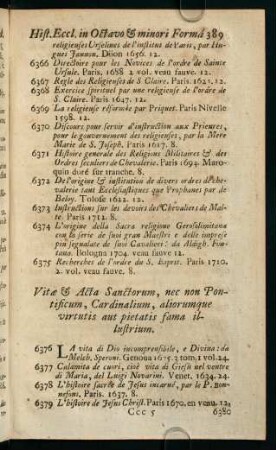 Hist. Eccl. in Octavo & minori Formâ 389
religieuses Urselines de l'institut de Paris, par Hu-
gues Jannon. Dijon 1656. 12.
6366 Directoire pour les Novices de l'ordre de Sainte
Ursule. Paris. 1688 2 vol. veau fauve. 12.
6367 Regle des Religieuses de S. Claire. Paris 1621. 12.
6368 Exercice spirituel par une religieuse de l'ordre de
S. Claire. Paris 1627. 12.
6369 La religieuse réformée par Priquet. Paris Nivelle
1598. 12.
6370 Discours pour servir d'instruction aux Prieures,
pour le gouvernement des religieuses, par la Mere
Marie de S. Joseph. Paris 1617. 8.
6371 Histoire generale des Religions Militaires & des
Ordres seculiers de Chevalerie. Paris 1694. Maro-
quin doré sur tranche. 8.
6372 De l'origine & institution de divers ordres de che-
valerie tant Ecclesiastiques que Prophanes par de
Beloy. Tolose 1612. 12.
6373 Instructions sur les devoirs des Chevaliers de Mal-
te. Paris 1712. 8.
6374 L'origine della Sacra religione Gerosolimitana
con la serie de suoi gran Maestri e delle imprese
più segnalate de suoi Cavalieri: da Aldigh. Fon-
tana. Bologna 1704. veau fauve 12.
6375 Recherches de l'ordre du S. Esprit. Paris 1710.
2. vol. veau fauve. 8.
Vitæ & Acta Sanctorum, nec non Pon-
tificum, Cardinalium, aliorumque
virtutis aut pietatis fama il-
lustrium.
6376 LA vita di Dio incomprensibile, e Divina: da
Meleb. Speroni. Genova 1675. 2 tom. 1 vol. 24.
6377 Calamita de cuori, cioè vita di Giesù nel ventre
di Maria, del Luigi Novarini. Venet. 1634. 24.
6378 L'histoire sacrée de Jesus incarné, par le P. Bon-
nefons. Paris. 1637. 8.
6379 L'histoire de Jesus Christ. Paris 1670. en veau. 12.
Ccc 5 6380